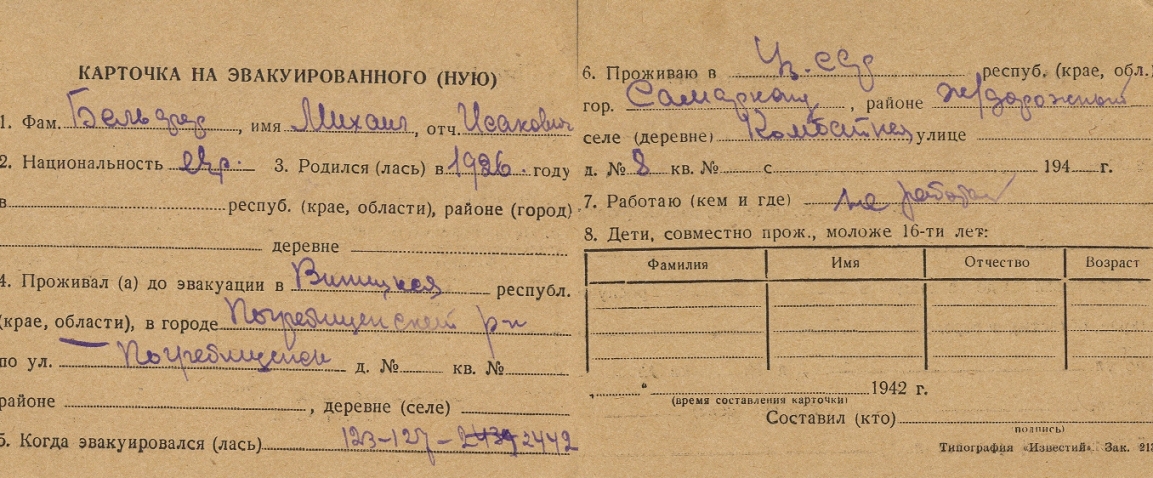 КАРТОЧКА НА ЭВАКУИРОВАННОГО (НУЮ)
1. Фам. Бельфер, имя Михаил, отч. Исакович
2. Национальность евр. 3. Родился (лась) в 1926. году
в респуб. (крае, области), районе (город)
деревне
4. Проживал (а) до эвакуации в Виницкая республ.
(крае, области), в городе Погребищенский р-н
по ул. Погребищенск д. № кв. №
районе , деревне (селе)
5. Когда эвакуировался (лась) 123-127-2439 2442
6. Проживаю в Уз. ССР респуб. (крае, обл.)
гор. Самарканд, районе ж/дорожный
селе (деревне) улице
д. № 8 кв. № с 194 г.
7. Работаю (кем и где) не работал
8. Дети, совместно прож., моложе 16-ти лет:
Фамилия Имя Отчество Возраст
„ “ 1942 г.
(время составления карточки)
Составил (кто)
подпись)
Типография «Известий». Зак. 213